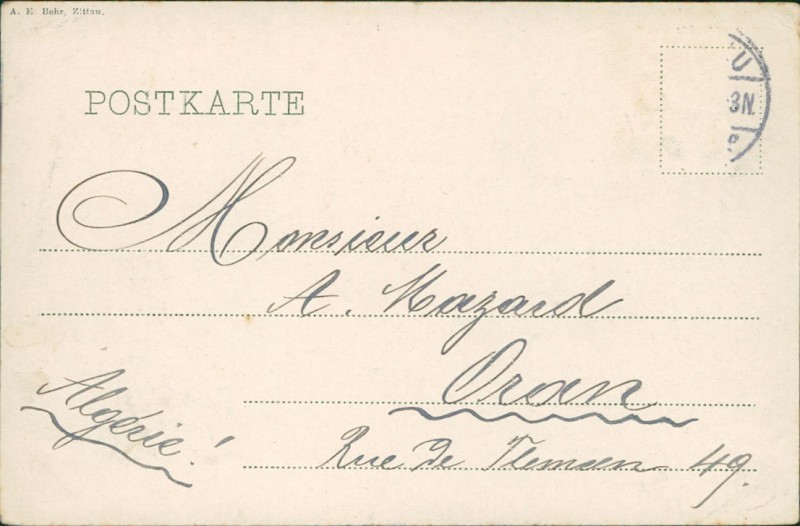 A. E. Behr, Zittau.
POSTKARTE
U
3N.
Monsieur
A. Mazard
Oran
Algérie!
Rue de Tlemcen 49.